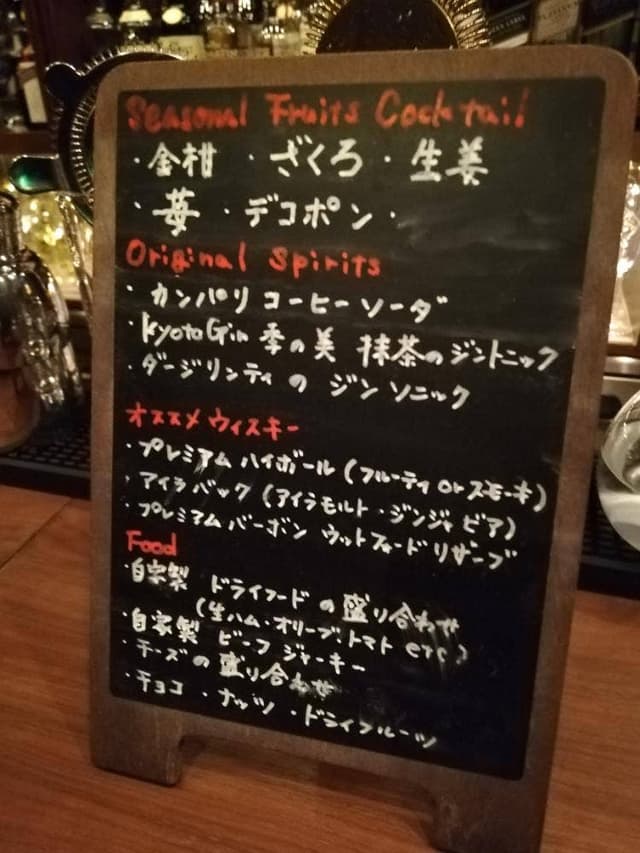 Seasonal Fruits Cocktail
・金柑 ・ざくろ・生姜
・苺・デコポン・
Original Spirits
・カンパリ コーヒーソーダ
・Kyoto Gin 季の美 抹茶のジントニック
・ダージリンティの ジンソニック
オススメウィスキー
・プレミアムハイボール(フルーティ or スモーキ)
・アイラバック(アイラモルト・ジンジャビア)
・プレミアムバーボン ウットフォードリザーブ
Food
・自家製 ドライフードの盛り合わせ
(生ハム・オリーブ・トマト etc)
・自家製 ビーフジャーキー
・チーズの盛り合わせ
・チョコ・ナッツ・ドライフルーツ